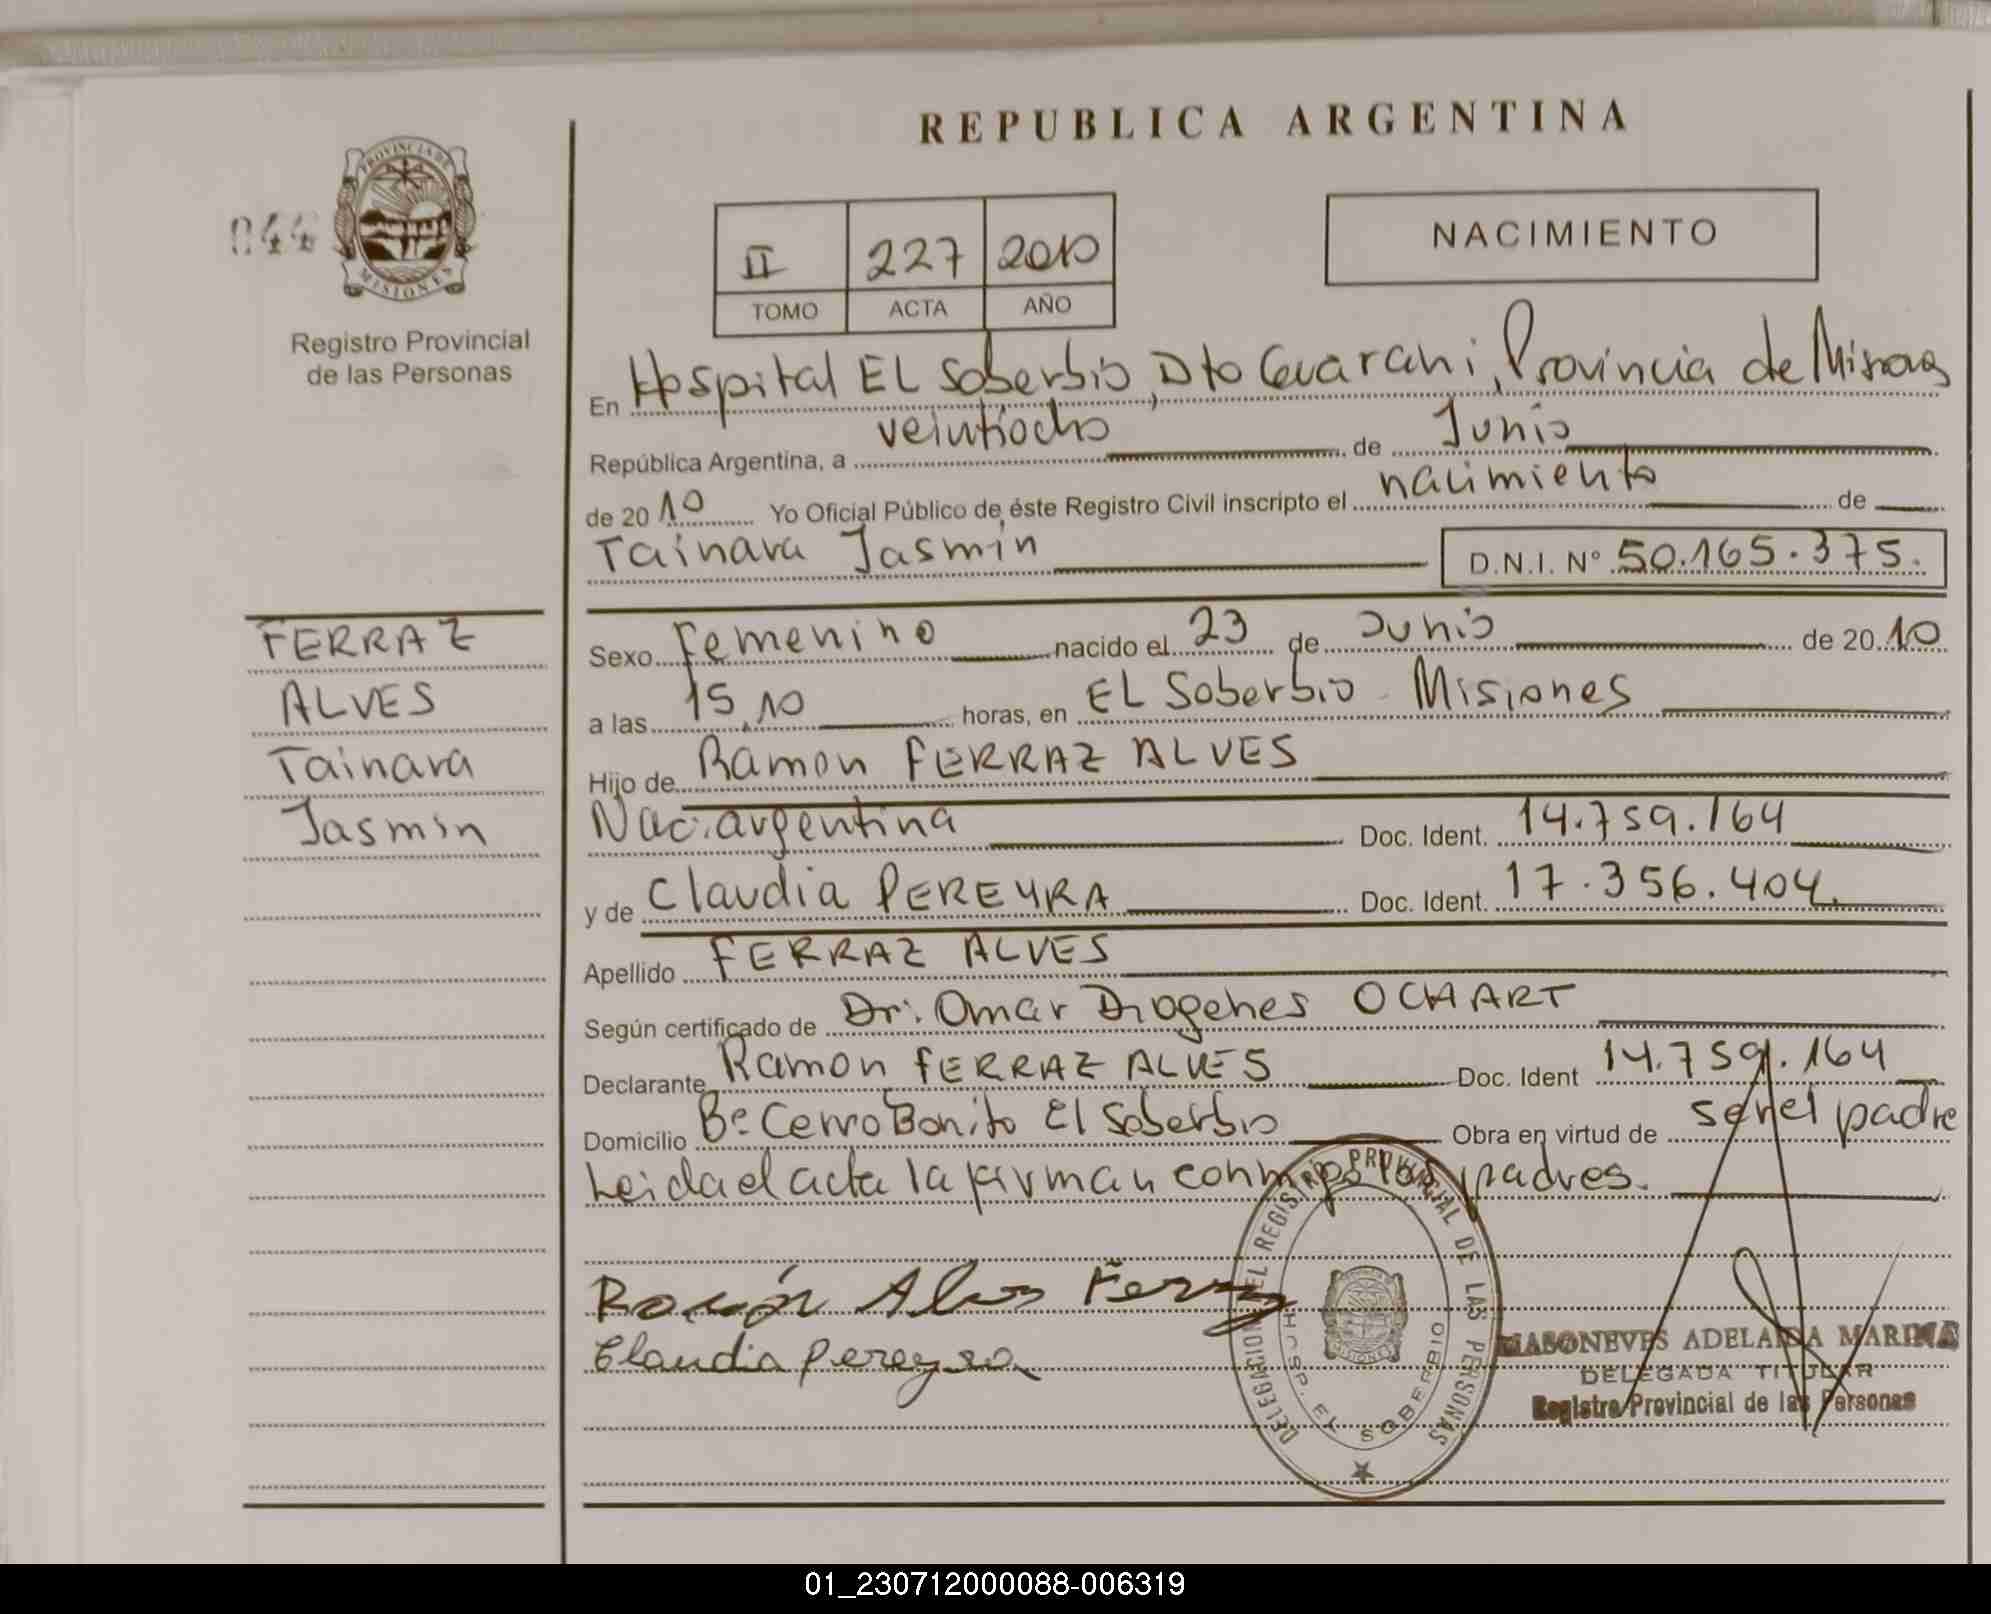 REPUBLICA ARGENTINA
PROVINCIA DE
MISIONES
044
Registro Provincial
de las Personas
II 227 2010
TOMO ACTA AÑO
NACIMIENTO
En Hospital EL Soberbio, Dto Guarani, Provincia de Misiones
República Argentina, a veintiocho de Junio
de 2010 Yo Oficial Público de éste Registro Civil inscripto el nacimiento de
Tainara Jasmin D.N.I. Nº 50.165.375.
FERRAZ
ALVES
Tainara
Jasmin
Sexo Femenino nacido el 23 de Junio de 2010
a las 15,10 horas, en EL Soberbio - Misiones
Hijo de Ramon FERRAZ ALVES
Nac. argentina Doc. Ident. 14.759.164
y de Claudia PEREYRA Doc. Ident. 17.356.404
Apellido FERRAZ ALVES
Según certificado de Dr. Omar Diogenes OCHART
Declarante Ramon FERRAZ ALVES Doc. Ident 14.759.164
Domicilio Bº Cerro Bonito El Soberbio Obra en virtud de ser el padre
Leida el acta la firman conmigo los padres.
Ramón Alves Ferraz
Claudia Pereyra
DELEGACION DEL REGISTRO PROVINCIAL DE LAS PERSONAS
HOSP. EL SOBERBIO
MASONEVES ADELAIDA MARINA
DELEGADA TITULAR
Registro Provincial de las Personas
01_230712000088-006319